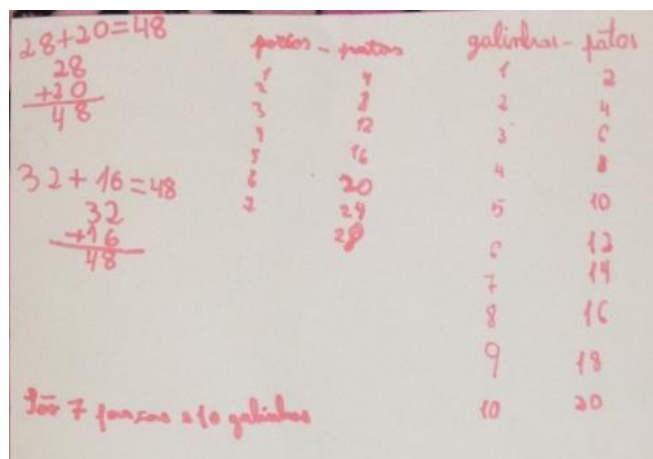 28+20=48
28
+20
48
32+16=48
32
+16
48
porcos - patas
1 4
2 8
3 12
4 16
5 20
6 24
7 28
galinhas - patas
1 2
2 4
3 6
4 8
5 10
6 12
7 14
8 16
9 18
10 20
São 7 porcos e 10 galinhas